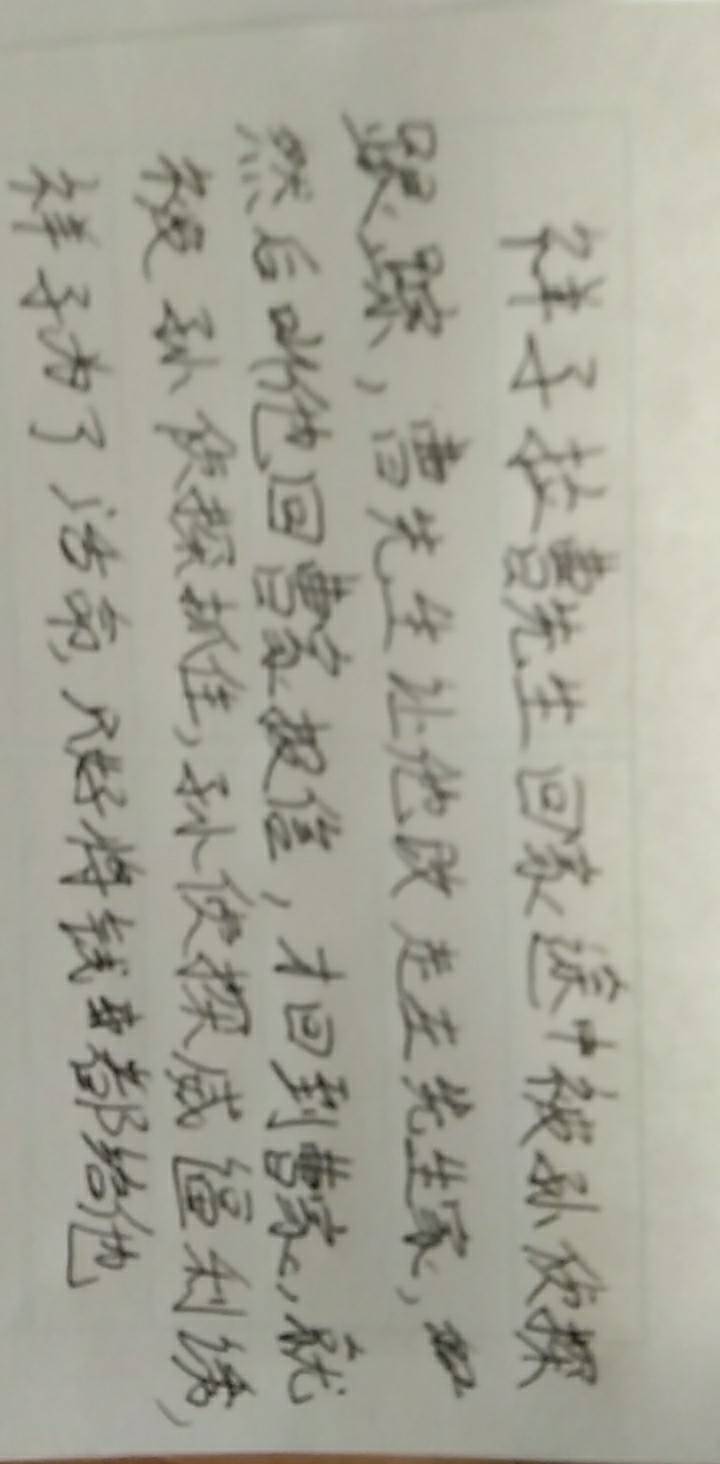 祥子拉曹先生回家途中被孙侦探
跟踪，曹先生让他改走左先生家，
然后叫他回曹家报信，才回到曹家，就
被孙侦探抓住，孙侦探威逼利诱，
祥子为了活命，只好将钱都给他